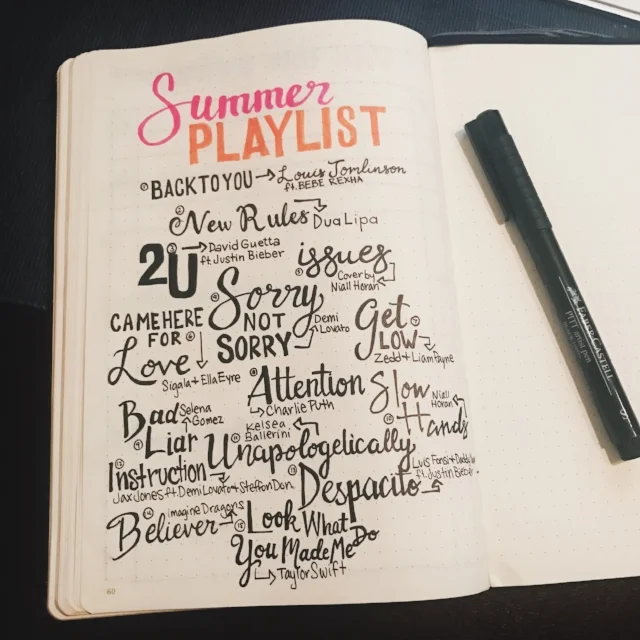 Summer
PLAYLIST
① BACK TO YOU → Louis Tomlinson
ft. BEBE REXHA
② New Rules Dua Lipa
③ 2U → David Guetta
ft. Justin Bieber
issues
Cover by
Niall Horan
Sorry
NOT
SORRY
Demi
Lovato
CAME HERE
FOR
Love
Sigala + Ella Eyre
Get
LOW
Zedd + Liam Payne
Attention
Charlie Puth
Slow
Hands
Niall
Horan
Bad
Liar
Selena
Gomez
Kelsea
Ballerini
Unapologetically
Instruction
Jax Jones ft. Demi Lovato + Stefflon Don
Despacito
Luis Fonsi + Daddy
ft. Justin Bieber
Believer
Imagine Dragons
Look What
You Made Me Do
Taylor Swift
60
FABER-CASTELL
PITT artist pen
S